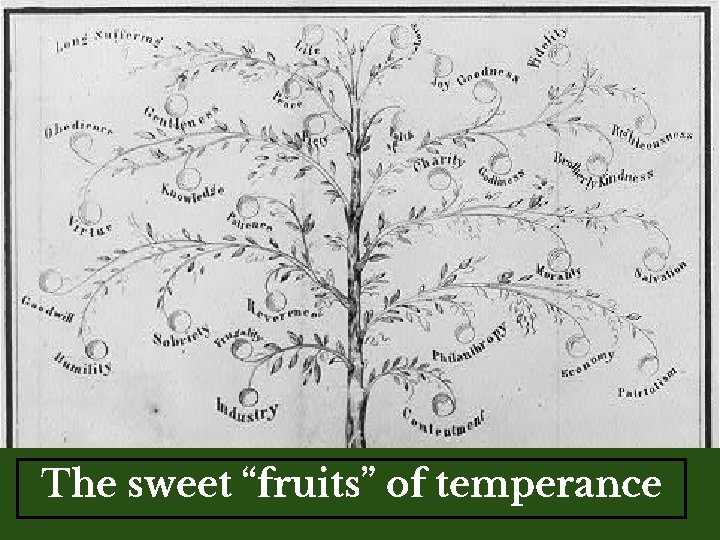 Long Suffering
Life
Joy
Goodness
Fidelity
Peace
Gentleness
Obedience
Piety
Faith
Righteousness
Charity
Godliness
Brotherly Kindness
Knowledge
Virtue
Patience
Morality
Salvation
Goodwill
Reverence
Sobriety
Frugality
Philanthropy
Humility
Economy
Patriotism
Industry
Contentment
The sweet “fruits” of temperance